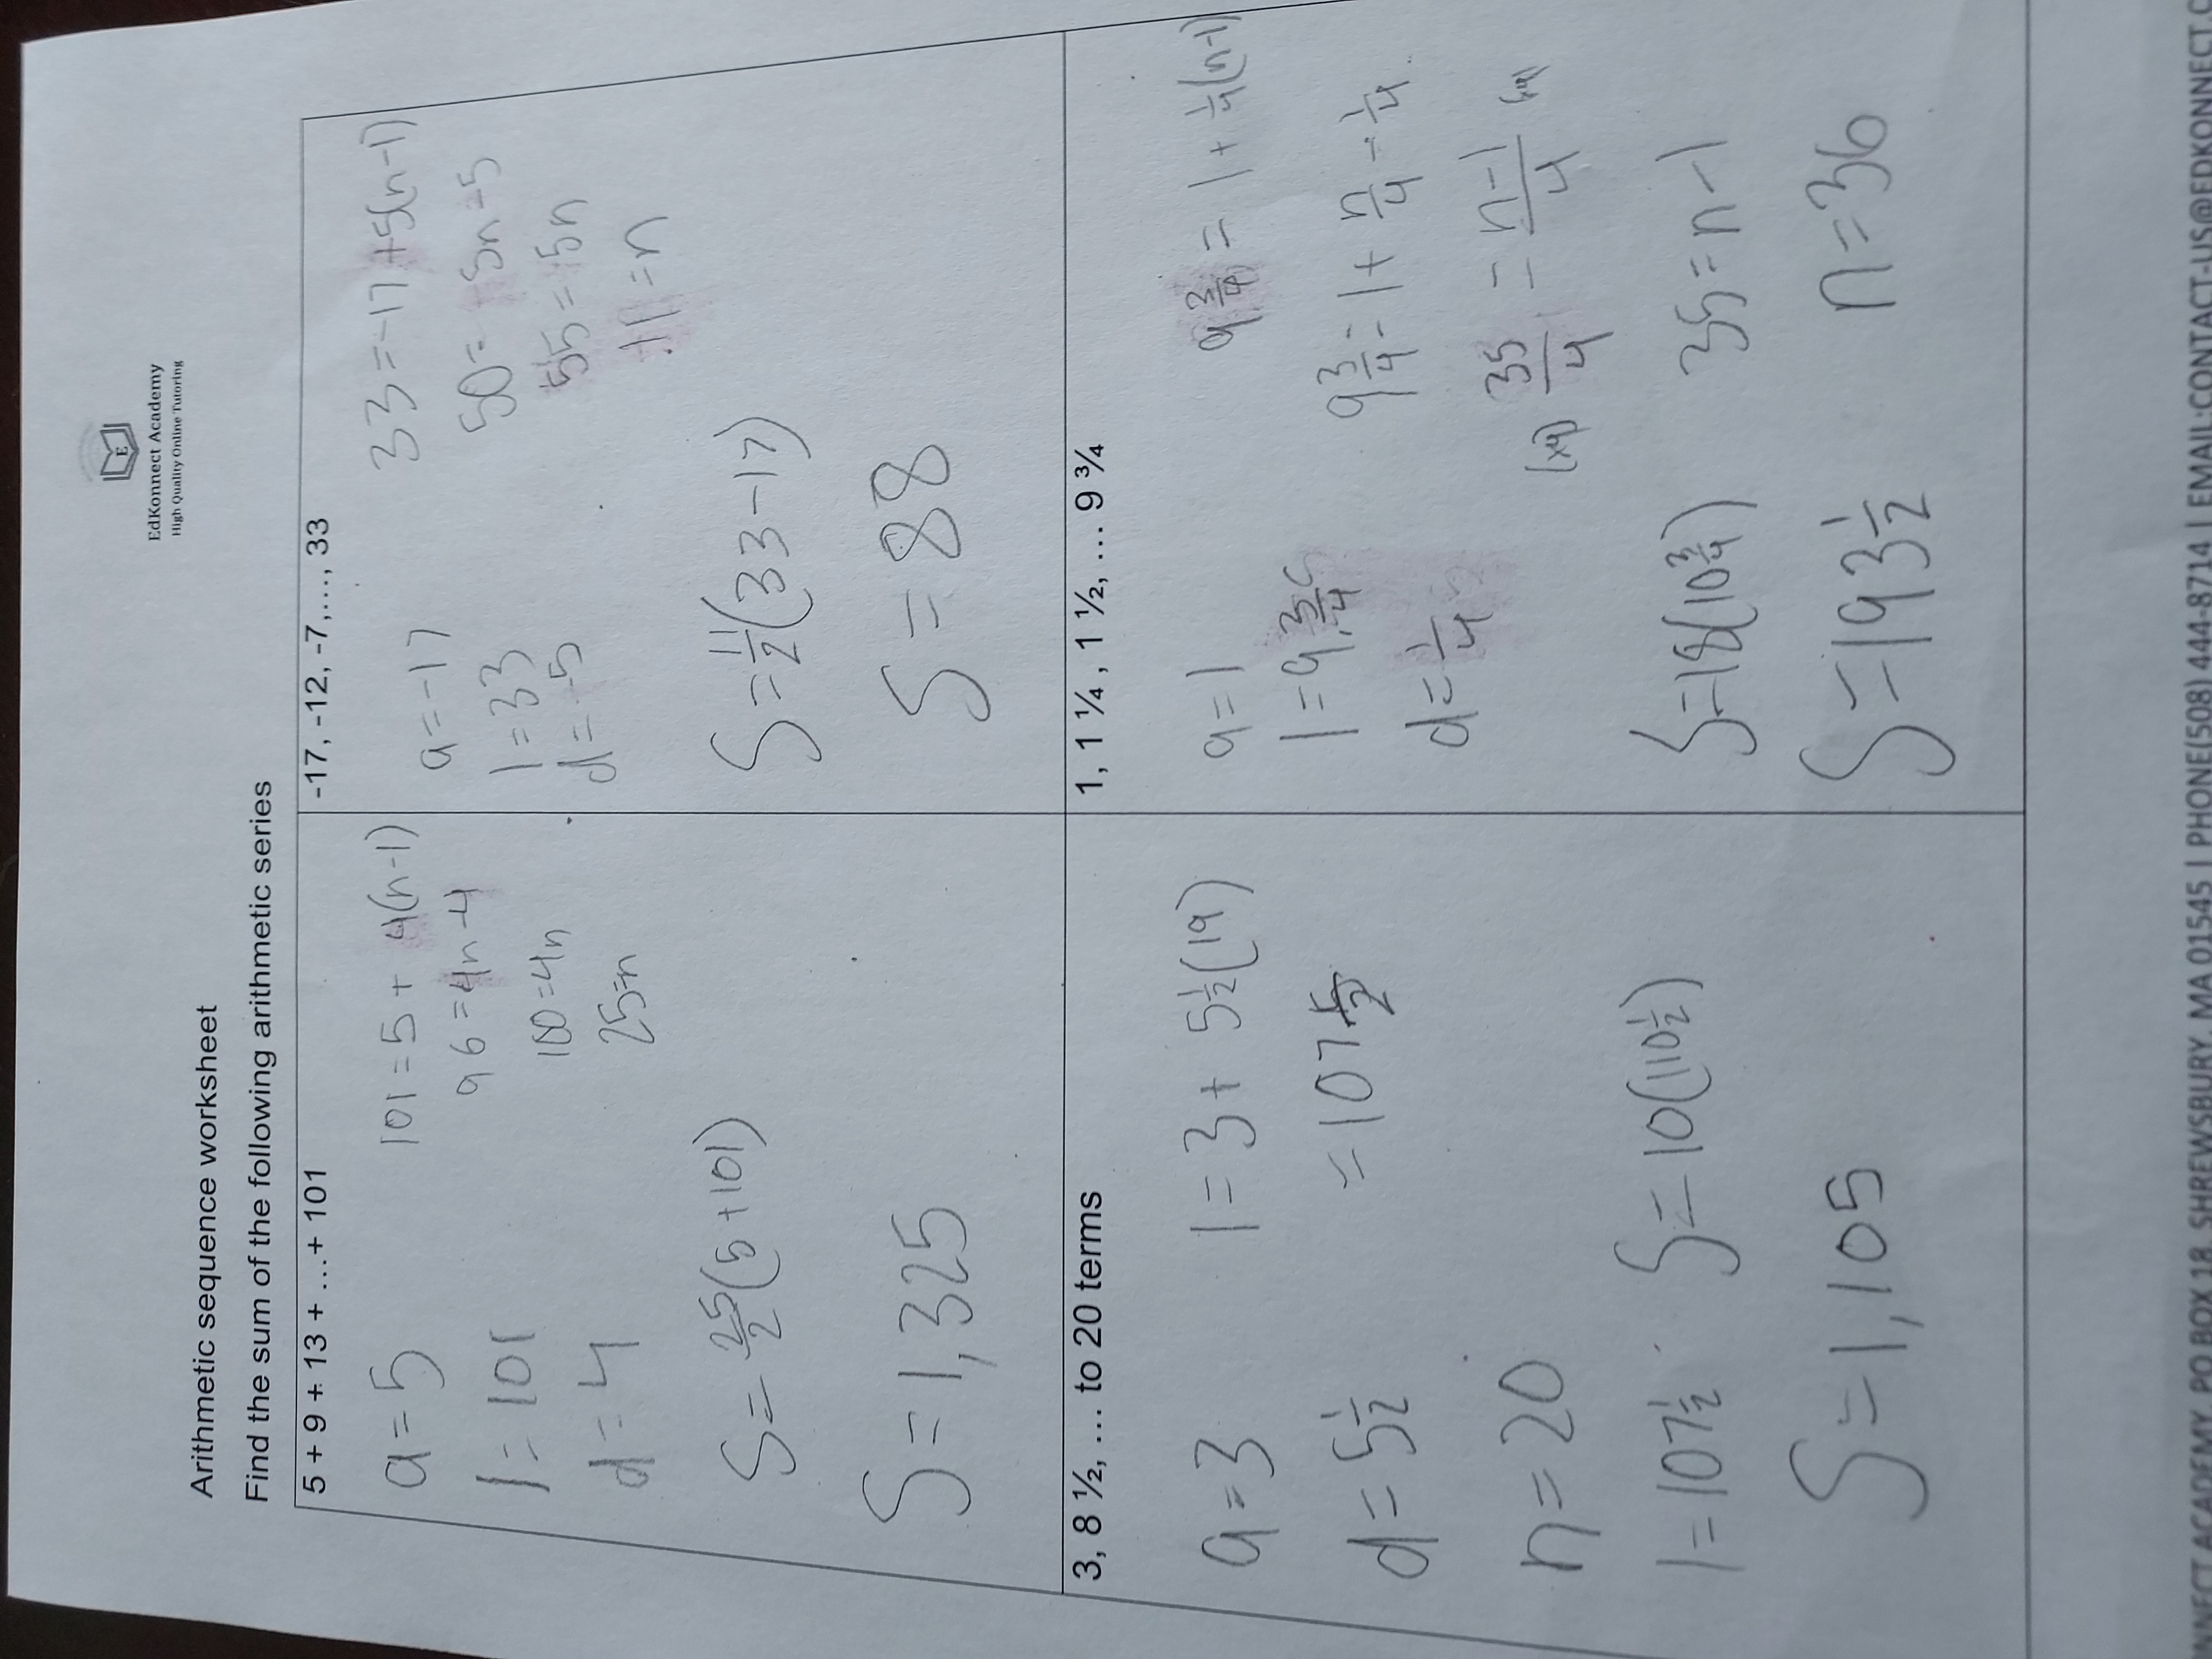 E
EdKonnect Academy
High Quality Online Tutoring
Arithmetic sequence worksheet
Find the sum of the following arithmetic series
5 + 9 + 13 + …+ 101
a = 5
l = 101
d = 4
101 = 5 + 4(n-1)
96 = 4n-4
100 = 4n
25=n
S = 25/2 (5+101)
S = 1,325
-17, -12, -7,…, 33
a = -17
l = 33
d = 5
33 = -17 +5(n-1)
50 = 5n-5
55 = 5n
11 = n
S = 11/2 (33-17)
S = 88
3, 8 ½, … to 20 terms
a = 3
d = 5 1/2
n = 20
l = 107 1/2
l = 3 + 5 1/2 (19)
= 107
S = 10(110 1/2)
S = 1,105
1, 1 ¼ , 1 ½, … 9 ¾
a = 1
l = 9 3/4
d = 1/4
9 3/4 = 1 + 1/4 (n-1)
9 3/4 = 1 + n/4 - 1/4
(x4) 35/4 = n-1/4 (x4)
35 = n-1
n = 36
S = 18(10 3/4)
S = 193 1/2
ONNECT ACADEMY, PO BOX 18, SHREWSBURY, MA 01545 | PHONE(508) 444-8714 | EMAIL:CONTACT-US@EDKONNECT.C